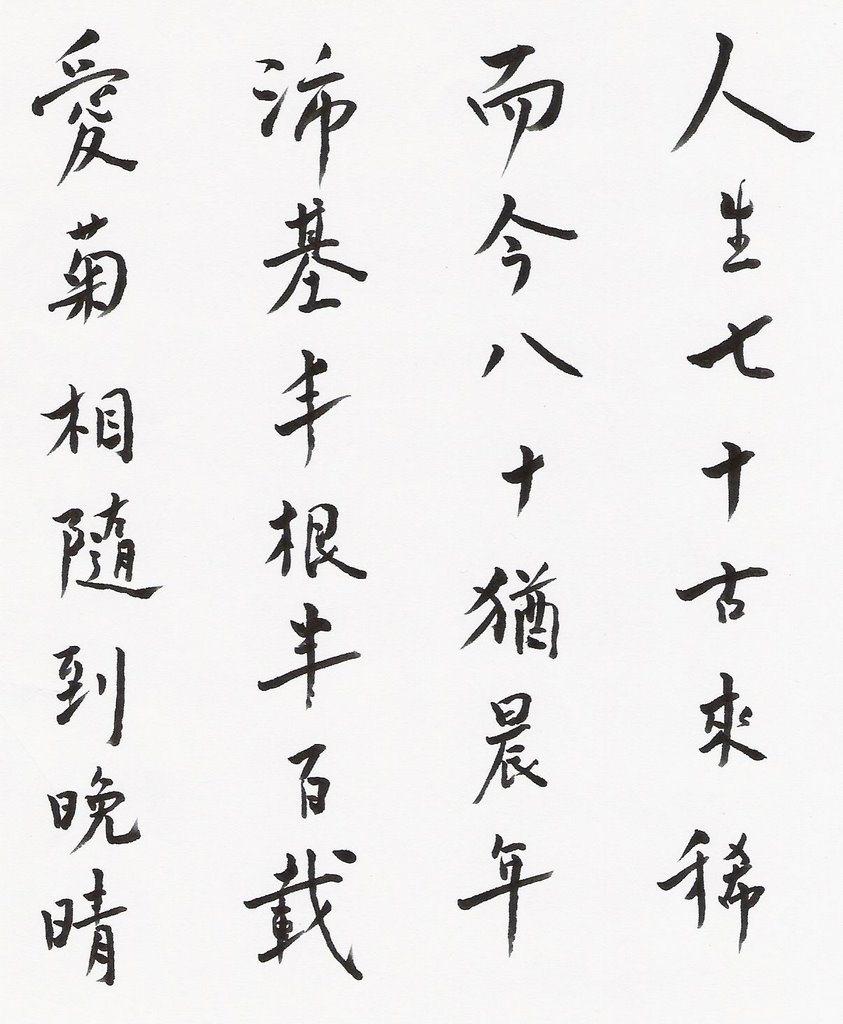 人生七十古來稀
而今八十猶晨年
沛基丰根丰百載
愛菊相隨到晚晴